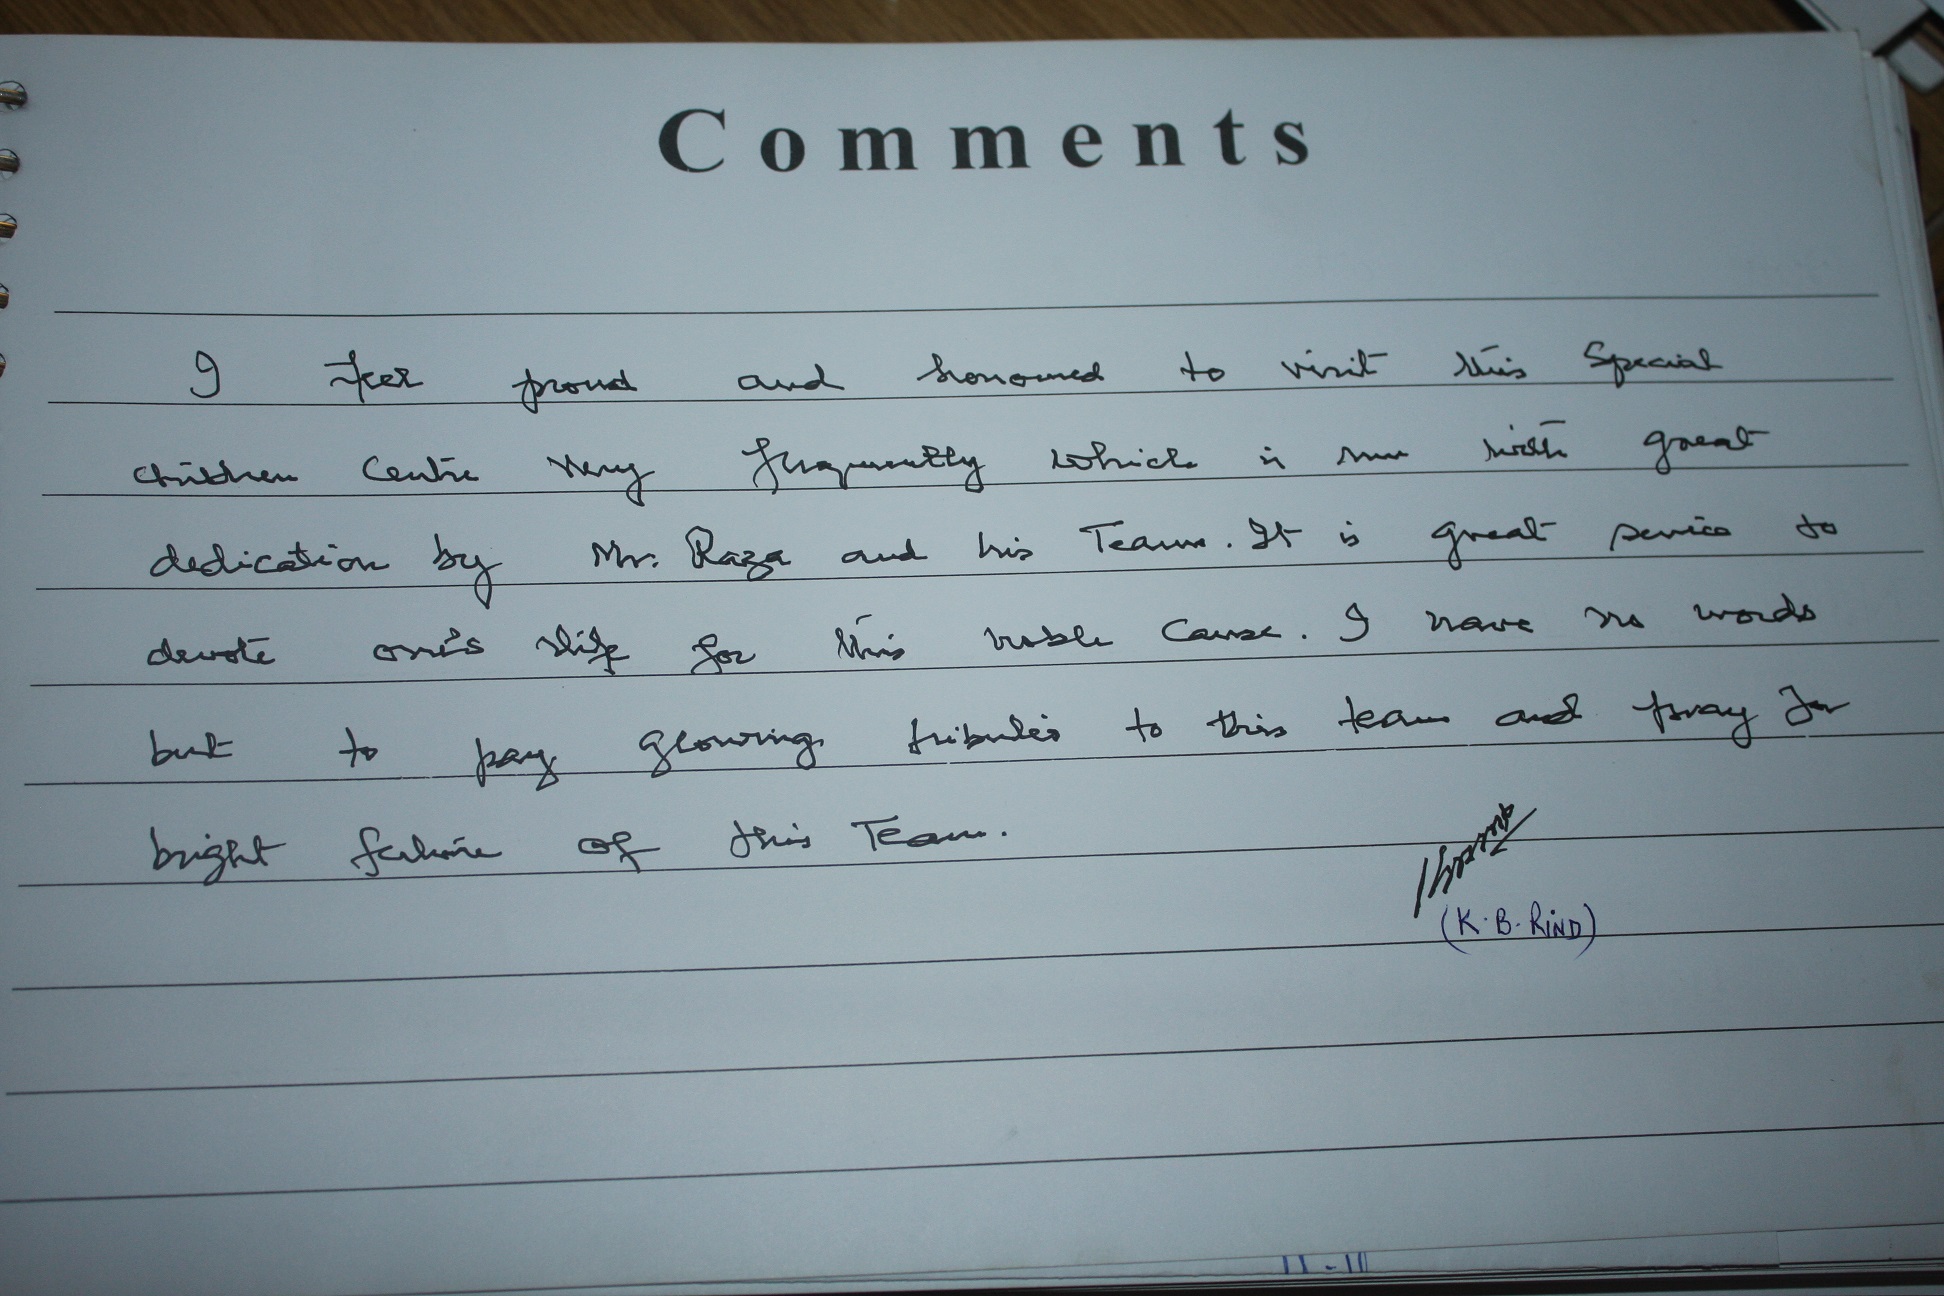 Comments
I feel proud and honoured to visit this Special
children Centre very frequently which is run with great
dedication by Mr. Raza and his Team. It is great service to
devote one's life for this noble cause. I have no words
but to pay glowing tributes to this team and pray for
bright future of this Team.
(K.B. RIND)
11-11